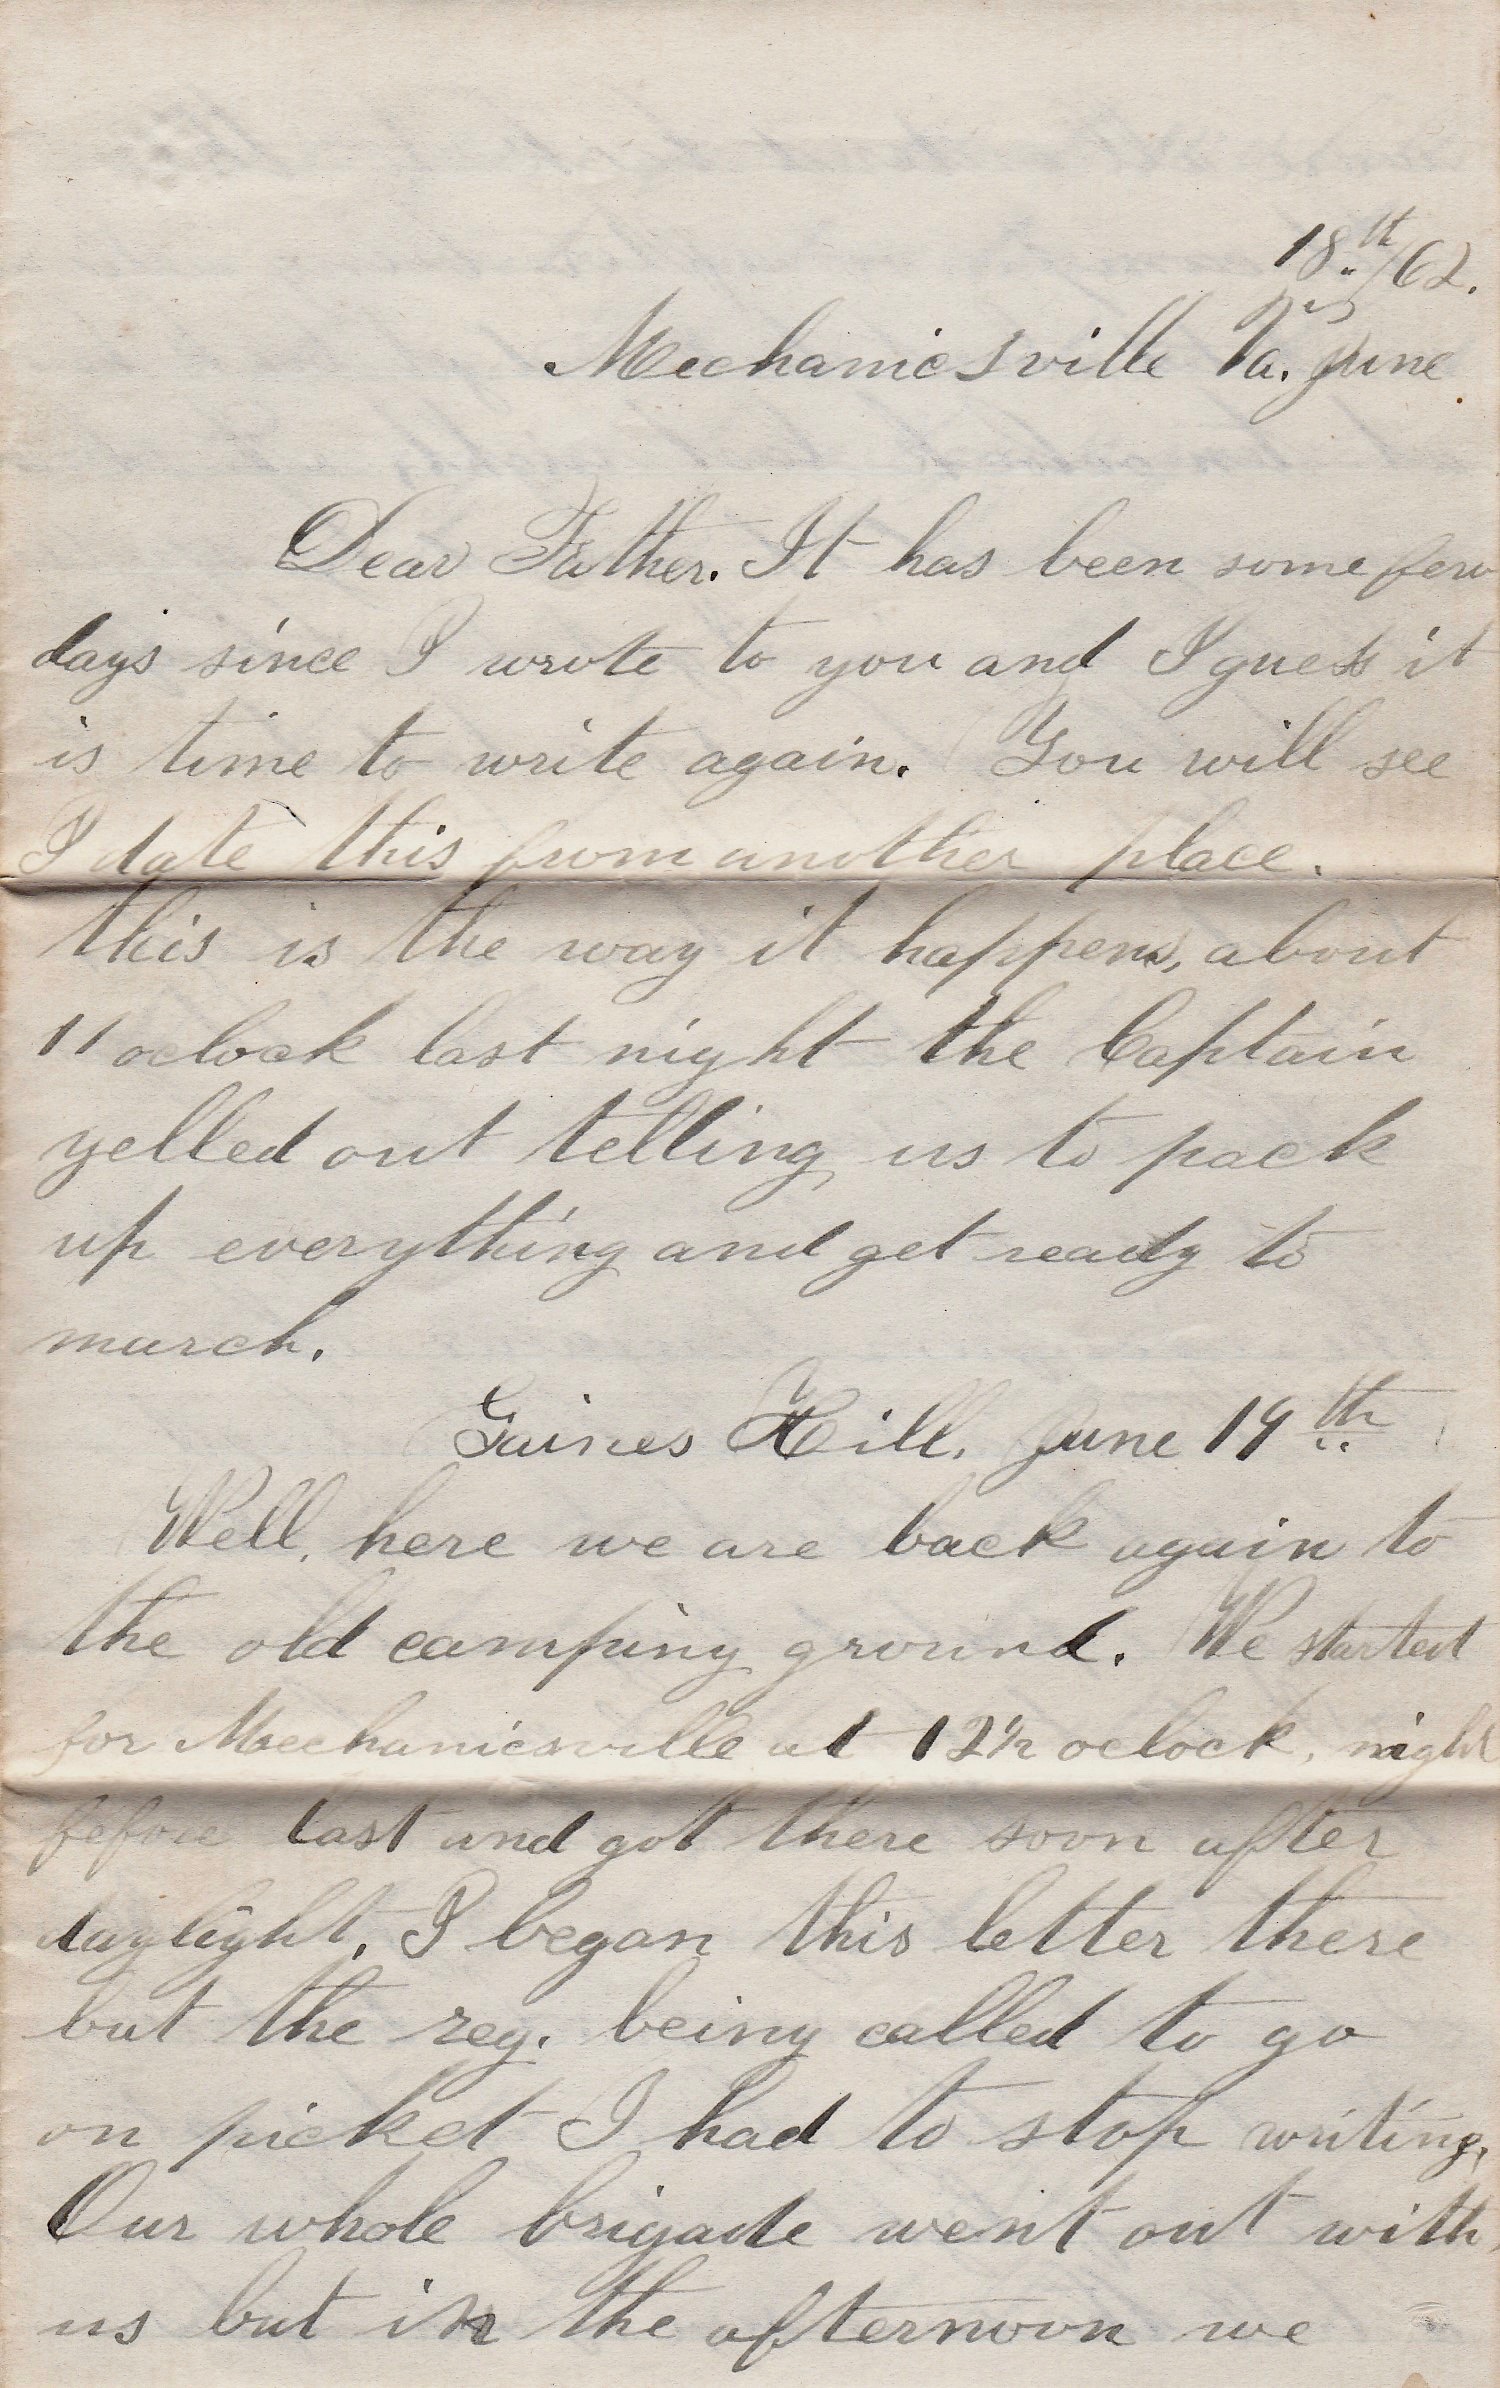 18th/62.
Mechanicsville Va. June
Dear Father. It has been some few
days since I wrote to you and I guess it
is time to write again. You will see
I date this from another place.
this is the way it happens, about
11 oclock last night the Captain
yelled out telling us to pack
up everything and get ready to
march.
Gaines Hill. June 19th
Well, here we are back again to
the old camping ground. We started
for Mechanicsville at 12½ oclock, night
before last and got there soon after
daylight. I began this letter there
but the reg. being called to go
on picket I had to stop writing.
Our whole brigade went out with
us but in the afternoon we